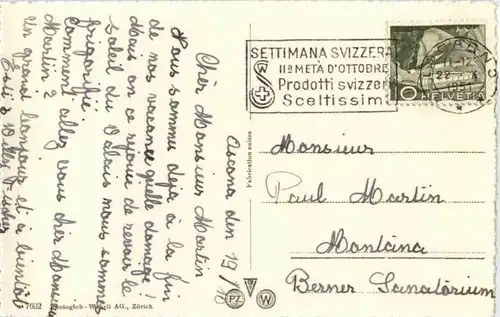 Ascona den 19/10
Cher Monsieur Martin
Nous sommes déjà à la fin
de nos vacances quelle domage!
Mais on ce rejouie de revoir le
soleil du Valais nous sommes
frigorifié
Comment allez vous cher Monsieur
Martin?
Un grand bonjour et à bientôt
SETTIMANA SVIZZERA
IIª METÀ D'OTTOBRE
Prodotti svizzeri
Sceltissimi
10
HELVETIA
Monsieur
Paul Martin
Montana
Berner Sanatorium
Fabrication suisse
7602 Photoglob-Wehrli AG., Zürich
PZ W